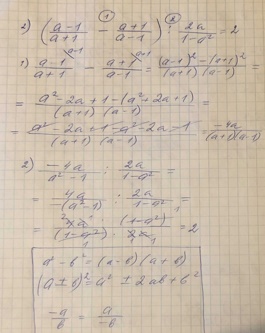 ① ②
2) (a-1/a+1 - a+1/a-1) : 2a/1-a² = 2
1) a-1/a+1 \a-1 - a+1/a-1 \a+1 = (a-1)²-(a+1)²/(a+1)(a-1) =
= a²-2a+1-(a²+2a+1)/(a+1)(a-1) =
= a²-2a+1-a²-2a-1/(a+1)(a-1) = -4a/(a+1)(a-1)
2) -4a/a²-1 : 2a/1-a² =
= -4a/-(a²-1) : 2a/1-a² =
= 4a · (1-a²)/(1-a²) · 2a = 2
a²-b²=(a-b)(a+b)
(a±b)²=a²±2ab+b²
-a/b = a/-b